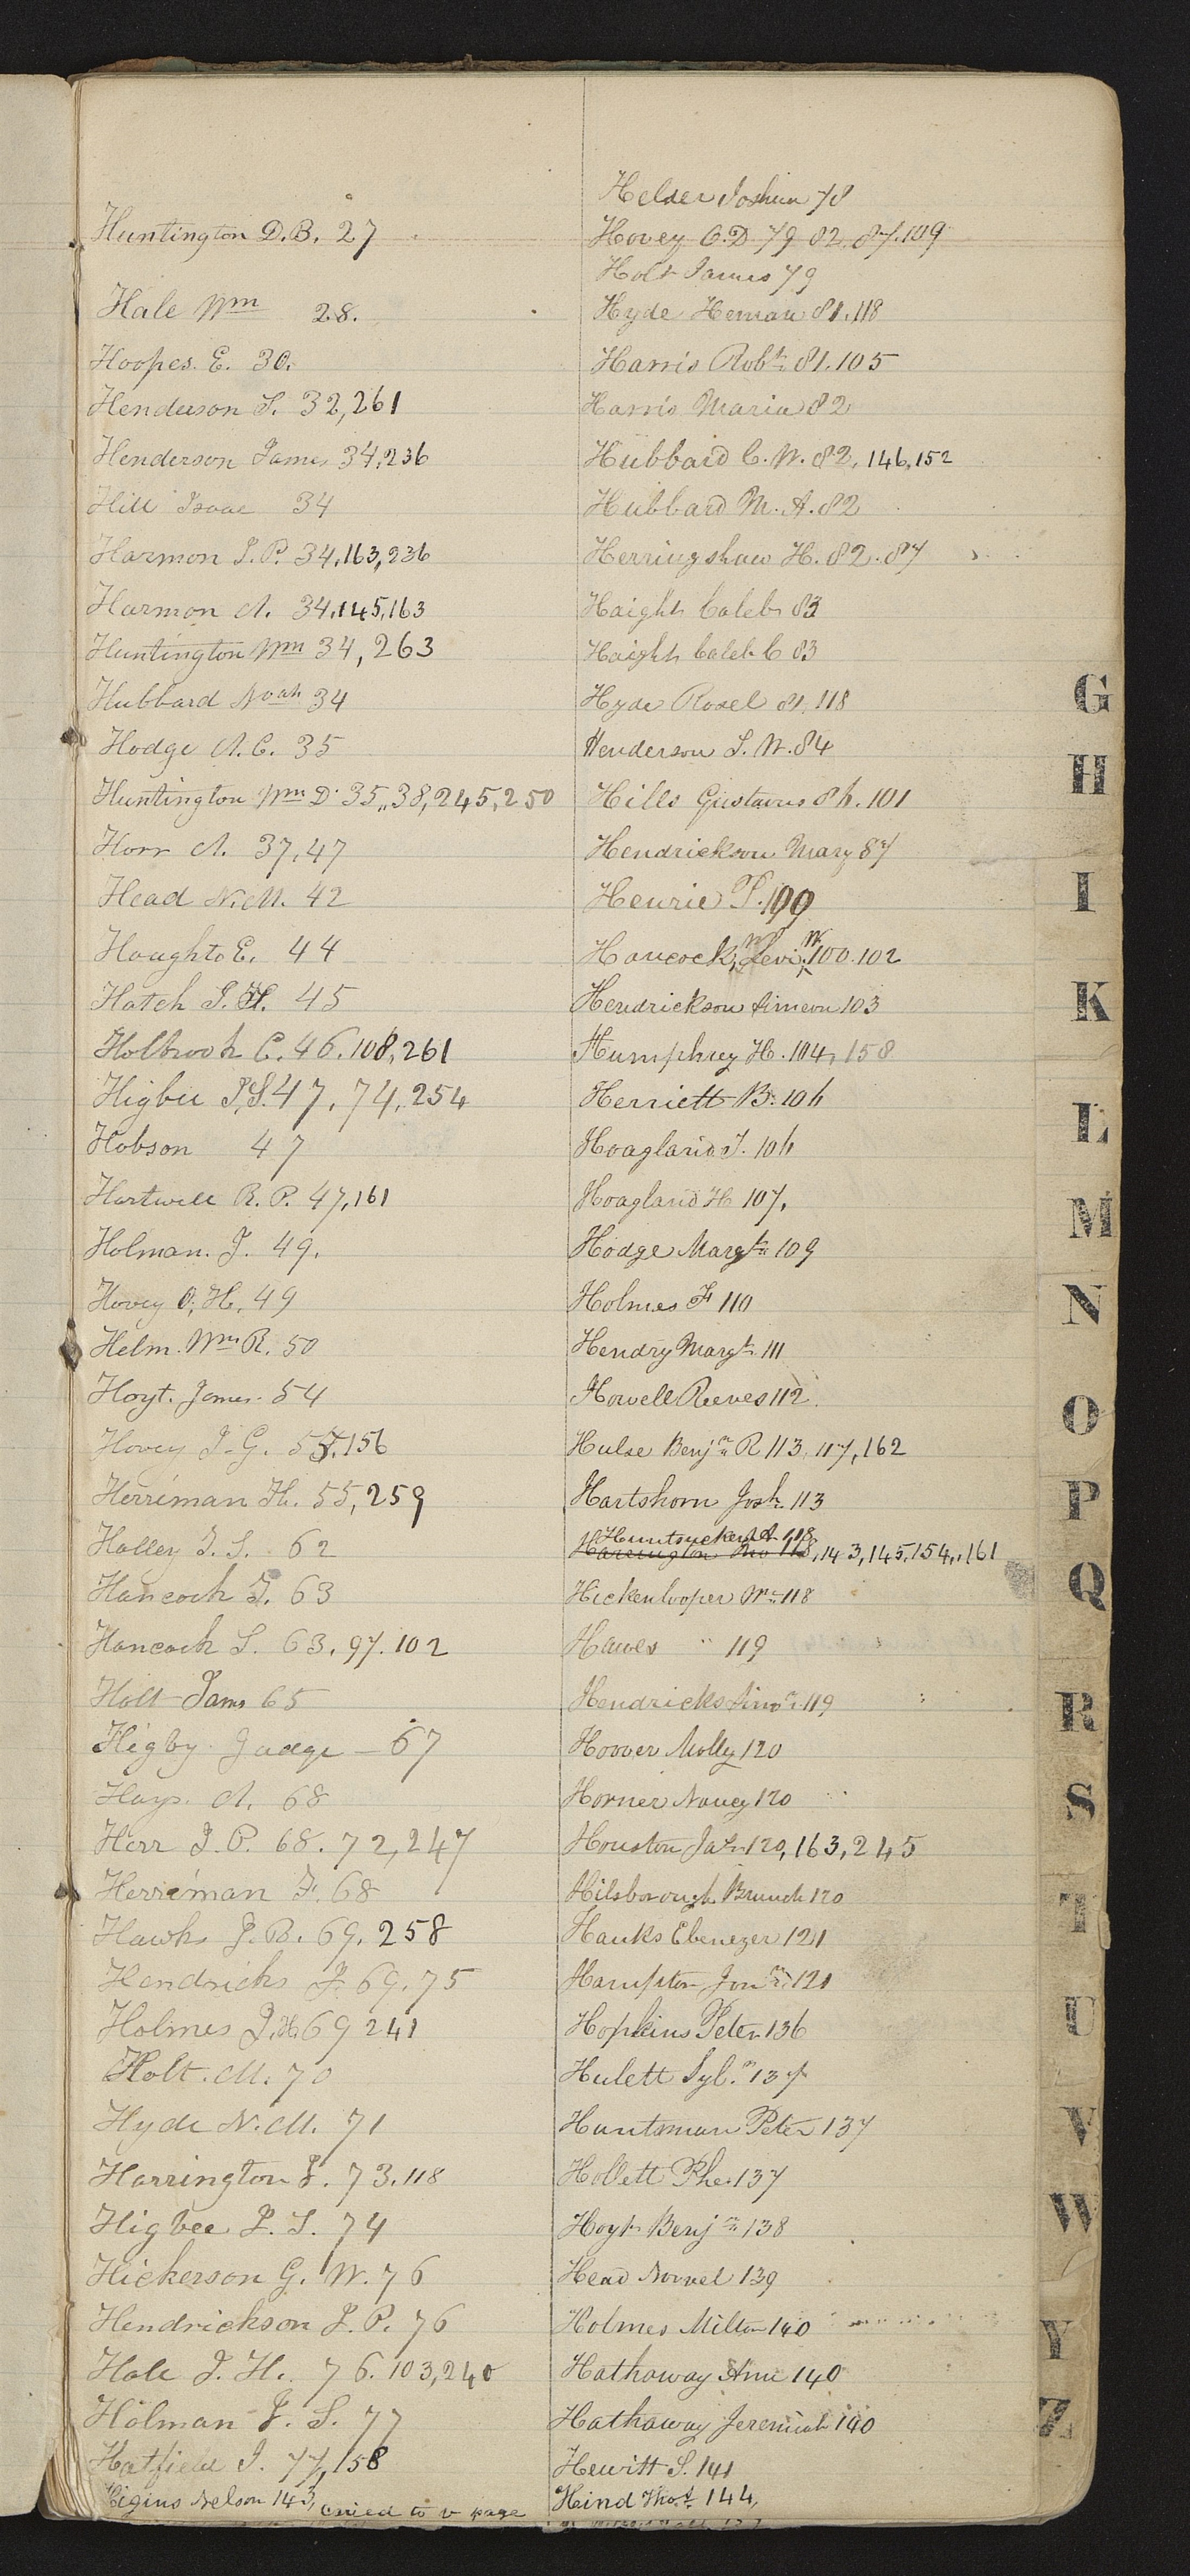 Huntington D.B. 27
Hale Wm 28.
Hoopes. E. 30.
Henderson S. 32,261
Henderson James 34,236
Hill Isaac 34
Harmon J.P. 34,163,236
Harmon A. 34,145,163
Huntington Wm 34, 263
Hubbard Noah 34
Hodge A.C. 35
Huntington Wm D. 35,,38,245,250
Horr A. 37,47
Head N.M. 42
Houghto E. 44
Hatch I. H. 45
Holbrook C. 46.108,261
Higbee I.S. 47, 74, 254
Hobson 47
Hartwell R. P. 47,161
Holman. J. 49.
Hovey O, H. 49
Helm. Wm R. 50
Hoyt. James. 54
Hovey J. G. 55.156
Herriman H. 55, 259
Holley J. S. 62
Hancock J. 63
Hancock S. 63. 97. 102
Holt James 65
Higby Judge — 67
Hays. A. 68
Herr J. P. 68. 72,247
Herriman F. 68
Hawks J. B. 69. 258
Hendricks J. 69. 75
Holmes J.H. 69 241
Holt. M. 70
Hyde N. M. 71
Harrington J. 73.118
Higbee J. S. 74
Hickerson G. W. 76
Hendrickson J. P. 76
Hale J. H. 76. 103,240
Holman J. S. 77
Hatfield J. 77,158
Higins Nelson 143, to page
Helder Joshua 78
Hovey O.D 79 82. 87.109
Holt James 79
Hyde Heman 81.118
Harris Robt. 81.105
Harris Maria 82
Hubbard C. W. 82. 146,152
Hubbard M. A. 82
Herringshaw H. 82. 87
Haight Caleb 83
Haight Caleb C 83
Hyde Rosel 81.118
Henderson S. W. 84
Hills Gustavus 86. 101
Hendrickson Mary 87
Henrie
Hancock, Levi W. 100.102
Hendrickson Simeon 103
Humphrey H. 104, 158
Herriett B. 106
Hoagland J. 106
Hoagland H 107.
Hodge Margt. 109
Holmes F 110
Hendry Margt. 111
Howell Reeves 112.
Hulse Benjn R 113, 117, 162
Hartshorn Josh. 113
Huntsucker A 118
Harrington 118,143,145,154,,161
Hickenlooper Wm 118
Hawes " 119
Hendricks Simn. 119
Hoover Molly 120
Horner Nancy 120
Houston Jas. 120, 163, 245
Hilsborough Branch 120
Hanks Ebenezer 121
Hampton Jonn. 121
Hopkins Peter 136
Hulett Syl.r 137
Huntsman Peter 137
Hollett Phe. 137
Hoyt Benjn. 138
Head Norvel 139
Holmes Milton 140
Hathaway Ann 140
Hathaway Jeremiah 140
Hewitt S. 141
Hind Thos. 144,
G
H
I
K
L
M
N
O
P
Q
R
S
T
U
V
W
Y
Z